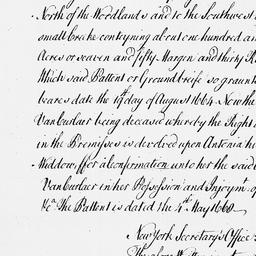 North of the Woodlands and to the Southwest
small creke conteyning about one hundred an
Acres or seaven and fifty Margen and thirty R
Which said Pattent or Groundbreife so graunt
beares date the 19th day of August 1664. Now the
Van Curlaer being deceased whereby the Right
in the Premisses is devolved upon Antonia hi
Widdow, ffor a confirmation unto her the said
Van Curlaer in her Possession and Injoym of
&ca. The Pattent is dated the 4th May 1668.
New York Secretary's Office